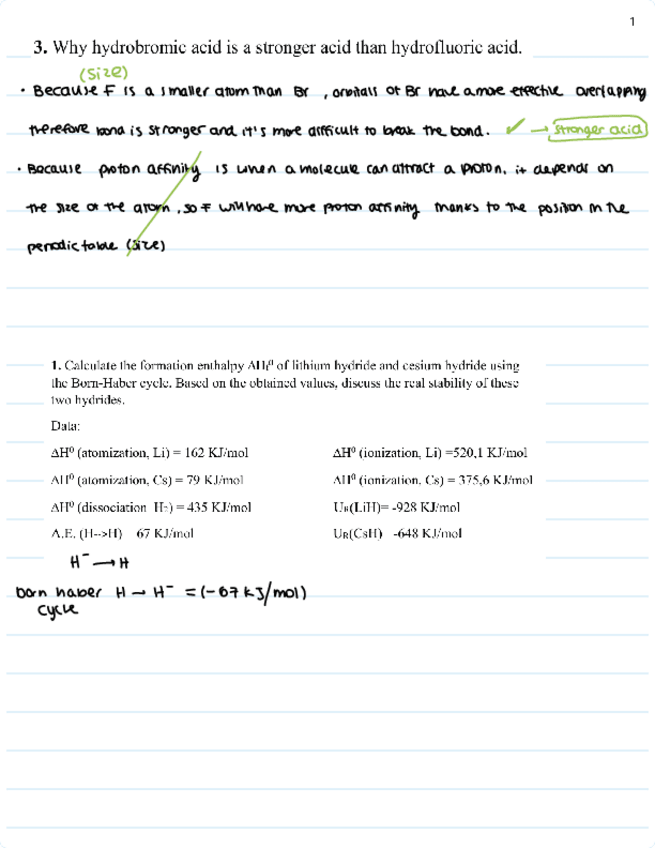 1
3. Why hydrobromic acid is a stronger acid than hydrofluoric acid.
(size)
• Because F is a smaller atom than Br , orbitals of Br have a more effective overlapping
therefore bond is stronger and it's more difficult to break the bond. ✓ → stronger acid
• Because proton affinity is when a molecule can attract a proton, it depends on
the size of the atom, so F will have more proton affinity thanks to the position in the
periodic table (size)
1. Calculate the formation enthalpy ΔHf⁰ of lithium hydride and cesium hydride using
the Born-Haber cycle. Based on the obtained values, discuss the real stability of these
two hydrides.
Data:
ΔH⁰ (atomization, Li) = 162 KJ/mol ΔH⁰ (ionization, Li) =520,1 KJ/mol
ΔH⁰ (atomization, Cs) = 79 KJ/mol ΔH⁰ (ionization, Cs) = 375,6 KJ/mol
ΔH⁰ (dissociation H₂) = 435 KJ/mol UR(LiH)= -928 KJ/mol
A.E. (H-->H) 67 KJ/mol UR(CsH) -648 KJ/mol
H⁻ → H
born haber H → H⁻ = (-67 kJ/mol)
cycle